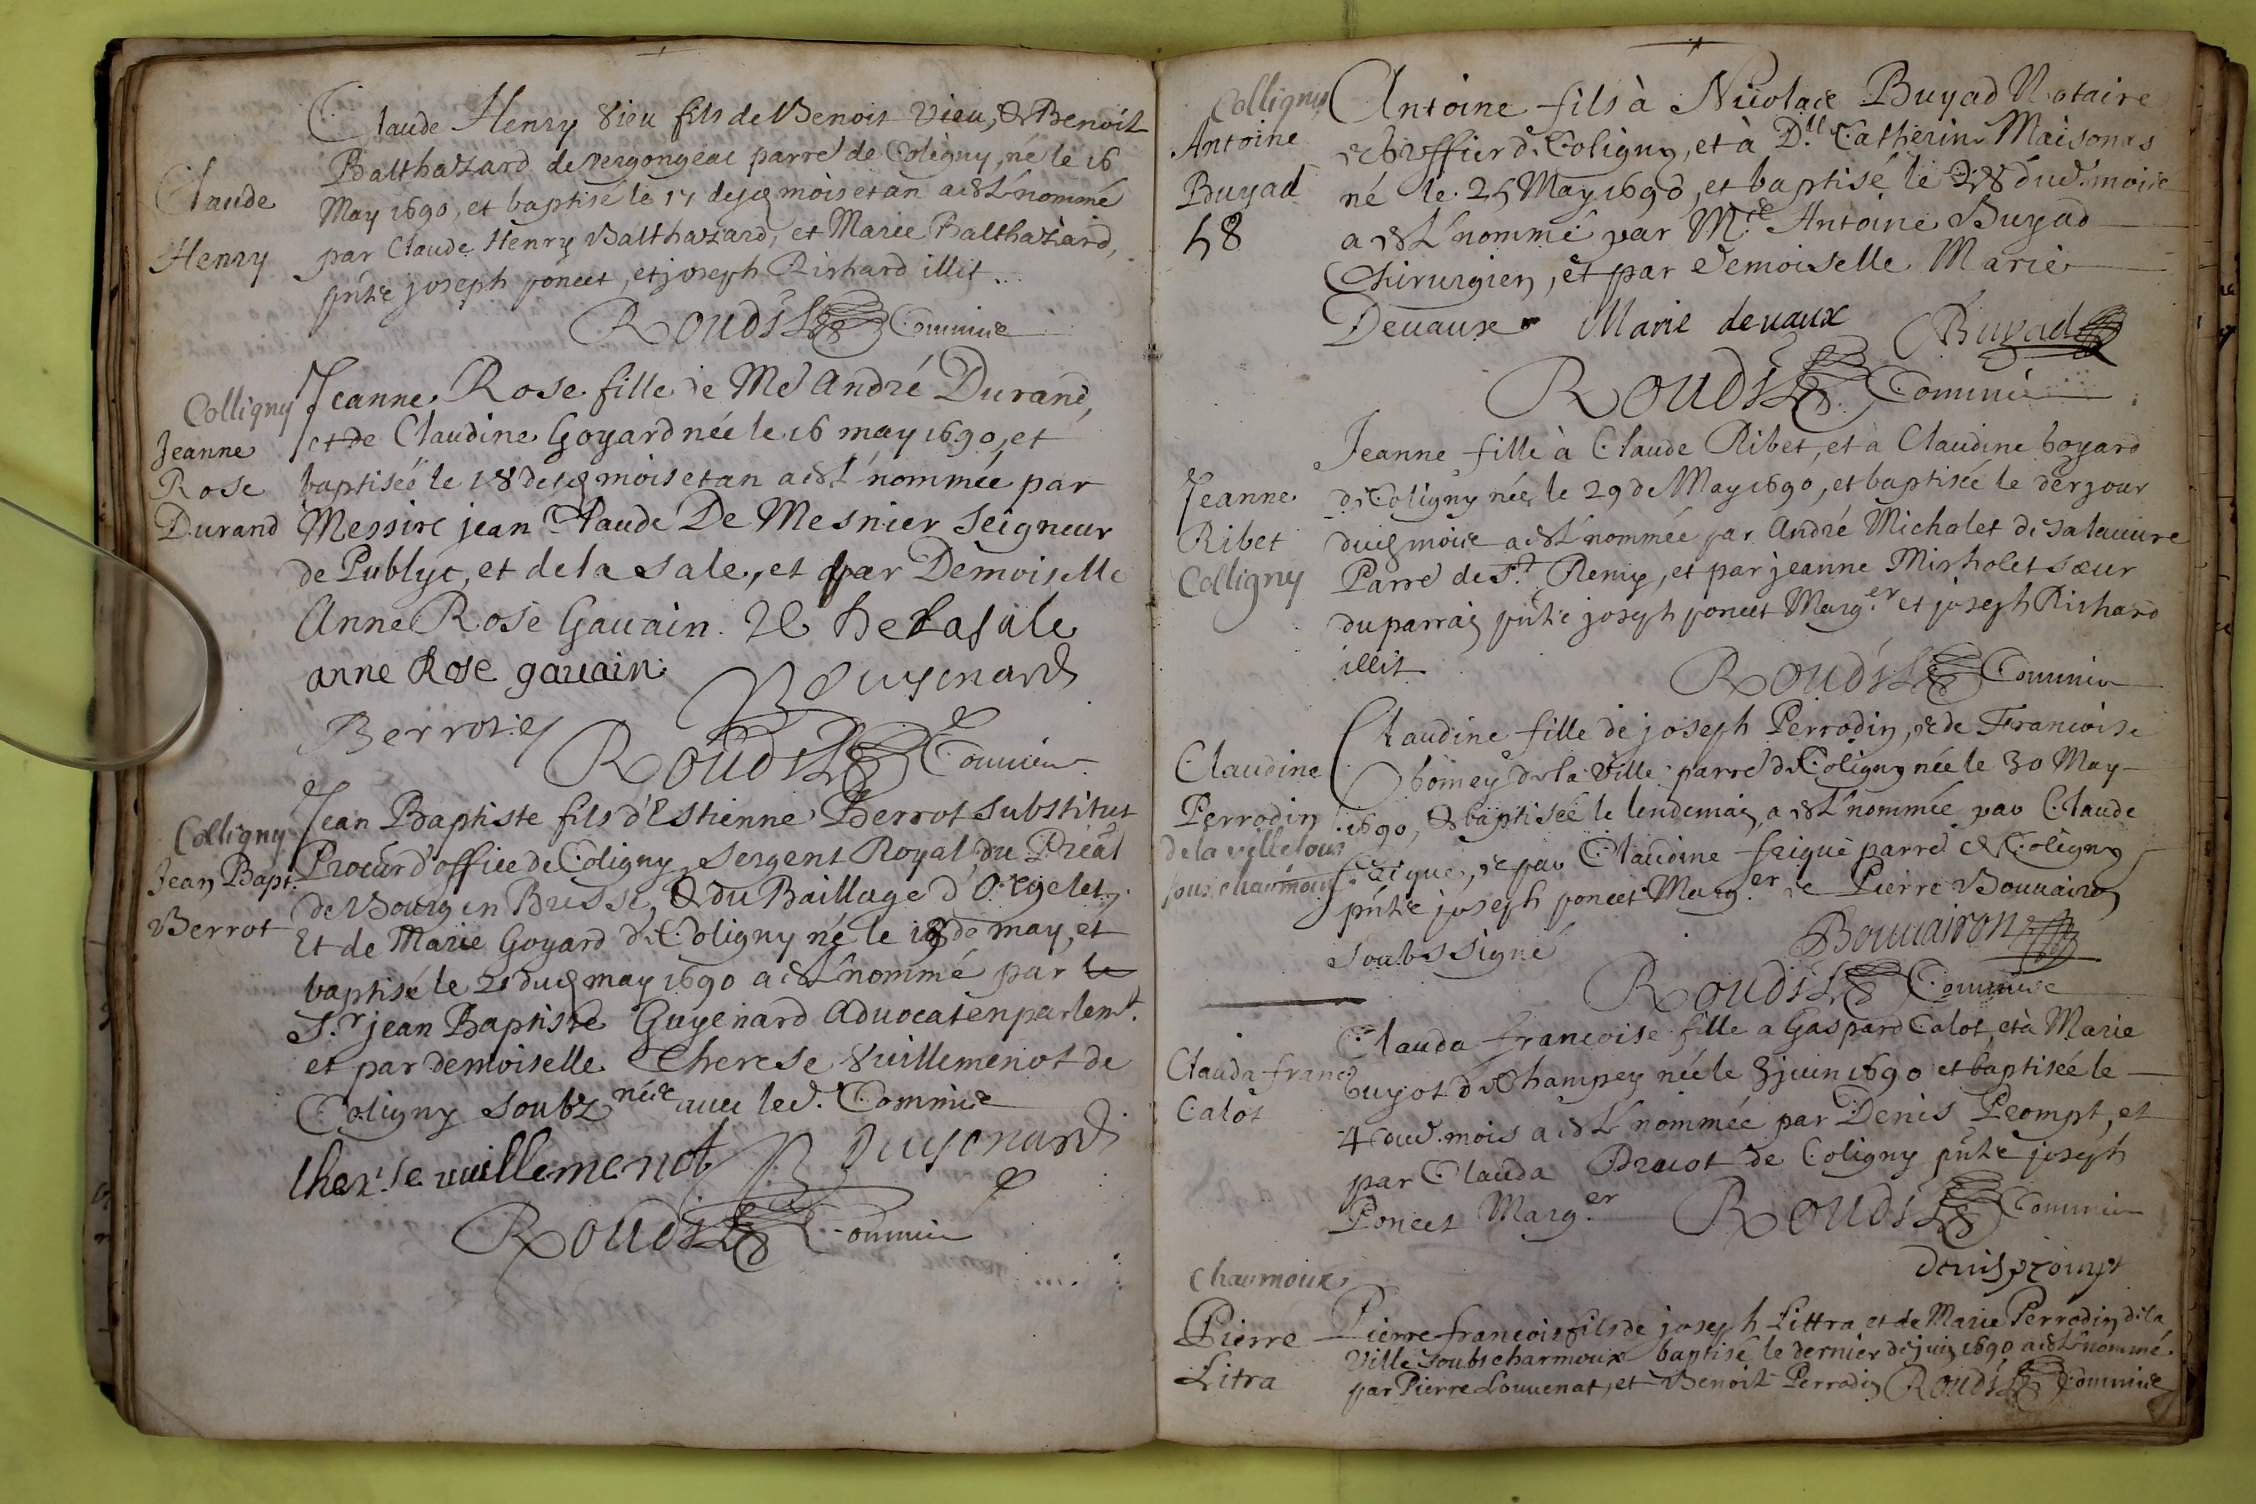 Claude
Henry
Claude Henry Vieu fils de Benoit Vieu, & Benoît
Balthazard de Vergongeac parre de Coligny, né le 16
May 1690, et baptisé le 17 desq mois et an a esté nommé
par Claude Henry Balthazard, et Marie Balthazard,
pnts joseph poncet, et joseph Richard illit...
Colligny
Jeanne
Rose
Durand
Jeanne Rose fille de Me André Durand,
et de Claudine Goyard née le 16 may 1690, et
baptisée le 18 desq mois et an a esté nommée par
Messire jean Claude De Mesnier Seigneur
de Publyc, et de la sale, et par Demoiselle
Anne Rose Gauain. De Lasale
anne Rose gauain
Colligny
Jean Bapt.
Berrot
Jean Baptiste fils d'Estienne Berrot substitut
Procur d'office de Coligny, Sergent Royal du Preal
de Bourg en Bresse, & du Baillage d'Orgelet,
Et de Marie Goyard de Coligny né le 18 de may, et
baptisé le 21 duq may 1690 a esté nommé par le
S.r jean Baptiste Guyenard Aduocat en parlemt.
et par demoiselle Therese Vuillemenot de
Coligny soubz nés auec led. Commis
therese uuillemenot Guyenard
Colligny
Antoine
Buyad
58
Antoine fils à Nicolace Buyad Notaire
& Greffier de Coligny, et à Dlle Catherine Maisonas
né le 25 May 1690, et baptisé le 28 dud. mois
a esté nommé par Me Antoine Buyad
Chirurgien, et par Demoiselle Marie
Deuaux Marie deuaux Buyad
Jeanne
Ribet
Colligny
Jeanne fille à Claude Ribet, et à Claudine Goyard
de Coligny née le 29 de May 1690, et baptisée le der jour
duq mois a esté nommée par André Micholet de salauure
Parre de St. Remy, et par jeanne Micholet sœur
du parrain pnts joseph poncet Marg.er et joseph Richard
illit
Claudine
Perrodin
de la ville sous
Claudine fille de joseph Perrodin, & de Francoise
de la Ville parre de Coligny née le 30 May
1690, & baptisée le lendemain, a esté nommée par Claude
frique, & par Claudine frique parre de Coligny
pnts joseph poncet Marg.er & Pierre Bouuairon
Soubssigné
Bouuairon
Clauda franc
Calot
Clauda francoise fille a Gaspard Calot, et à Marie
Guyot de Champey née le 3 juin 1690 et baptisée le
4 dud. mois a esté nommée par Denis Prompt, et
par Clauda de Coligny pnts joseph
Poncet Marg.er
Denis prompt
Charmoux
Pierre
Litra
Pierre francois fils de joseph Littra et de Marie Perrodin de la
Ville soubs charmoux baptisé le dernier de juin 1690 a esté nommé
par Pierre Louuenat, et Benoit Perrodin